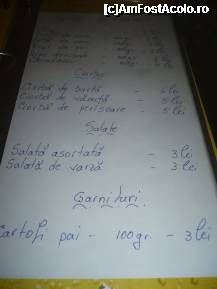 [c]AmFostAcolo.ro
Ciorbe
Ciorbă de burtă - 6 lei
Ciorbă de văcuță - 5 lei
Ciorbă de perișoare - 5 lei
Salate
Salată asortată - 3 lei
Salată de varză - 3 lei
Garnituri
Cartofi pai - 100gr - 3 lei